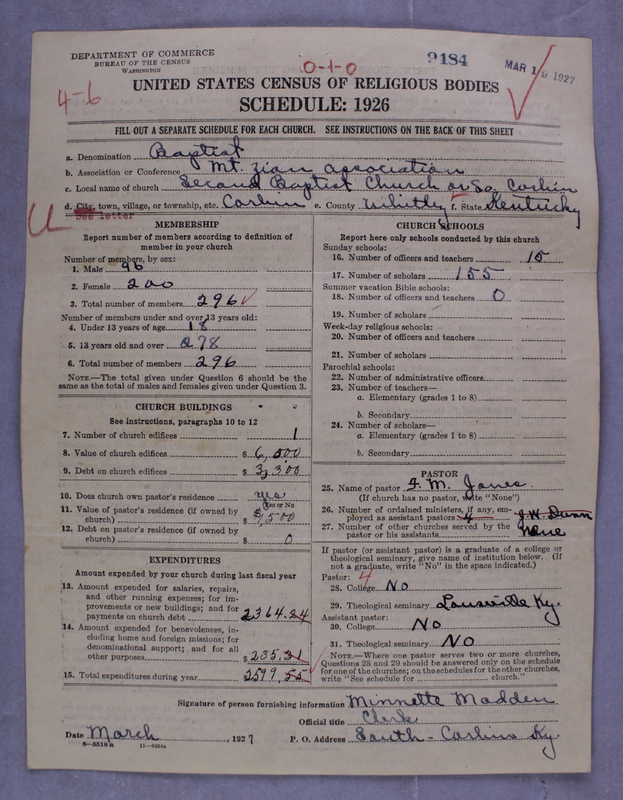 DEPARTMENT OF COMMERCE
BUREAU OF THE CENSUS
WASHINGTON
0-1-0
9484
MAR 18 1927
4-6
UNITED STATES CENSUS OF RELIGIOUS BODIES
SCHEDULE: 1926
FILL OUT A SEPARATE SCHEDULE FOR EACH CHURCH. SEE INSTRUCTIONS ON THE BACK OF THIS SHEET
a. Denomination Baptist
b. Association or Conference Mt. Zian association
c. Local name of church Second Baptist Church or So. Corbin
d. City, town, village, or township, etc. Corbin e. County Whitley f. State Kentucky
See letter
U
MEMBERSHIP
Report number of members according to definition of
member in your church
Number of members, by sex:
1. Male 96
2. Female 200
3. Total number of members 296
Number of members under and over 13 years old:
4. Under 13 years of age 18
5. 13 years old and over 278
6. Total number of members 296
NOTE.—The total given under Question 6 should be the
same as the total of males and females given under Question 3.
CHURCH BUILDINGS
See instructions, paragraphs 10 to 12
7. Number of church edifices 1
8. Value of church edifices $ 6,500
9. Debt on church edifices $ 3,300
10. Does church own pastor's residence yes
(Yes or No)
11. Value of pastor's residence (if owned by
church) $ 1,500
12. Debt on pastor's residence (if owned by
church) $ 0
EXPENDITURES
Amount expended by your church during last fiscal year
13. Amount expended for salaries, repairs,
and other running expenses; for im-
provements or new buildings; and for
payments on church debt 2364.24
14. Amount expended for benevolences, in-
cluding home and foreign missions; for
denominational support; and for all
other purposes $ 235.31
15. Total expenditures during year 2599.55
CHURCH SCHOOLS
Report here only schools conducted by this church
Sunday schools:
16. Number of officers and teachers 15
17. Number of scholars 155
Summer vacation Bible schools:
18. Number of officers and teachers 0
19. Number of scholars
Week-day religious schools:
20. Number of officers and teachers
21. Number of scholars
Parochial schools:
22. Number of administrative officers
23. Number of teachers—
a. Elementary (grades 1 to 8)
b. Secondary
24. Number of scholars—
a. Elementary (grades 1 to 8)
b. Secondary
PASTOR
25. Name of pastor F. M. Jones
(If church has no pastor, write "None")
26. Number of ordained ministers, if any, em-
ployed as assistant pastors J. W. Dunn
27. Number of other churches served by the
pastor or his assistants None
If pastor (or assistant pastor) is a graduate of a college or
theological seminary, give name of institution below. (If
not a graduate, write "No" in the space indicated.)
Pastor: 4
28. College No
29. Theological seminary Louisville Ky.
Assistant pastor:
30. College No
31. Theological seminary No
NOTE.—Where one pastor serves two or more churches,
Questions 28 and 29 should be answered only on the schedule
for one of the churches; on the schedules for the other churches,
write "See schedule for church."
Signature of person furnishing information Minnette Madden
Official title Clerk
Date March, 1927 P. O. Address South - Corbin Ky.
8-5518a 11-9554a